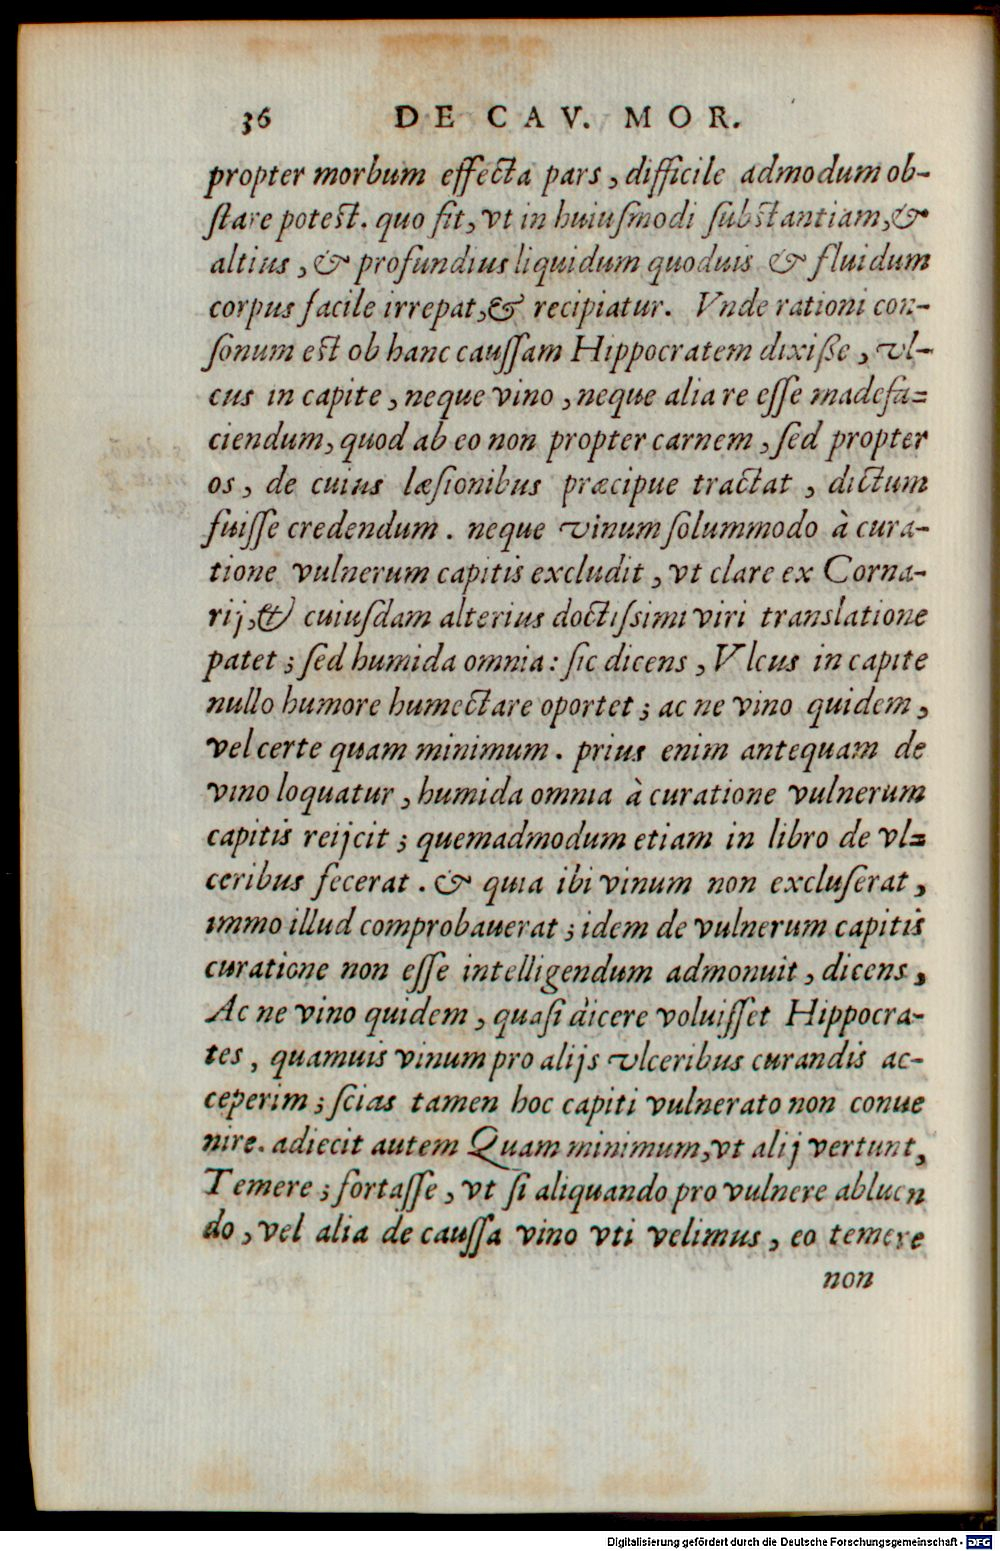 36 DE CAV. MOR.
propter morbum effecta pars, difficile admodum ob-
ſtare poteſt. quo fit, vt in huiuſmodi ſubſtantiam, &
altius, & profundius liquidum quoduis & fluidum
corpus facile irrepat, & recipiatur. Vnde rationi con-
ſonum eſt ob hanc cauſſam Hippocratem dixiße, vl-
cus in capite, neque vino, neque alia re eſſe madefa-
ciendum, quod ab eo non propter carnem, ſed propter
os, de cuius læſionibus præcipue tractat, dictum
fuiſſe credendum. neque vinum ſolummodo à cura-
tione vulnerum capitis excludit, vt clare ex Corna-
rij, & cuiuſdam alterius doctiſsimi viri translatione
patet; ſed humida omnia: ſic dicens, Vlcus in capite
nullo humore humectare oportet; ac ne vino quidem,
vel certe quam minimum. prius enim antequam de
vino loquatur, humida omnia à curatione vulnerum
capitis reijcit; quemadmodum etiam in libro de vl-
ceribus fecerat. & quia ibi vinum non excluſerat,
immo illud comprobauerat; idem de vulnerum capitis
curatione non eſſe intelligendum admonuit, dicens,
Ac ne vino quidem, quaſi dicere voluiſſet Hippocra-
tes, quamuis vinum pro alijs vlceribus curandis ac-
ceperim; ſcias tamen hoc capiti vulnerato non conue
nire. adiecit autem Quam minimum, vt alij vertunt,
Temere; fortaſſe, vt ſi aliquando pro vulnere abluen
do, vel alia de cauſſa vino vti velimus, eo temere
non
Digitalisierung gefördert durch die Deutsche Forschungsgemeinschaft - DFG